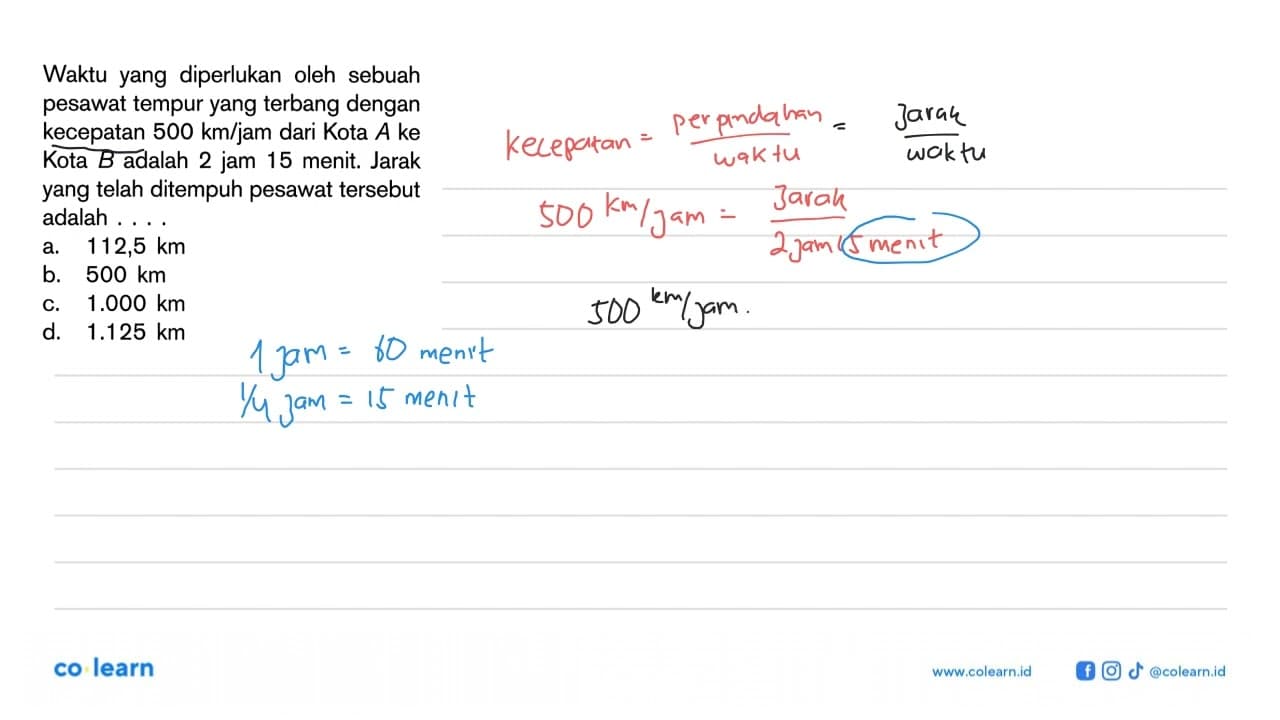 Waktu yang diperlukan oleh sebuah
pesawat tempur yang terbang dengan
kecepatan 500 km/jam dari Kota A ke
Kota B adalah 2 jam 15 menit. Jarak
yang telah ditempuh pesawat tersebut
adalah . . . .
a. 112,5 km
b. 500 km
c. 1.000 km
d. 1.125 km
kecepatan = perpindahan / waktu = Jarak / waktu
500 km/jam = Jarak / 2 jam 15 menit
500 km/jam.
1 jam = 60 menit
1/4 jam = 15 menit
co learn
www.colearn.id
@colearn.id